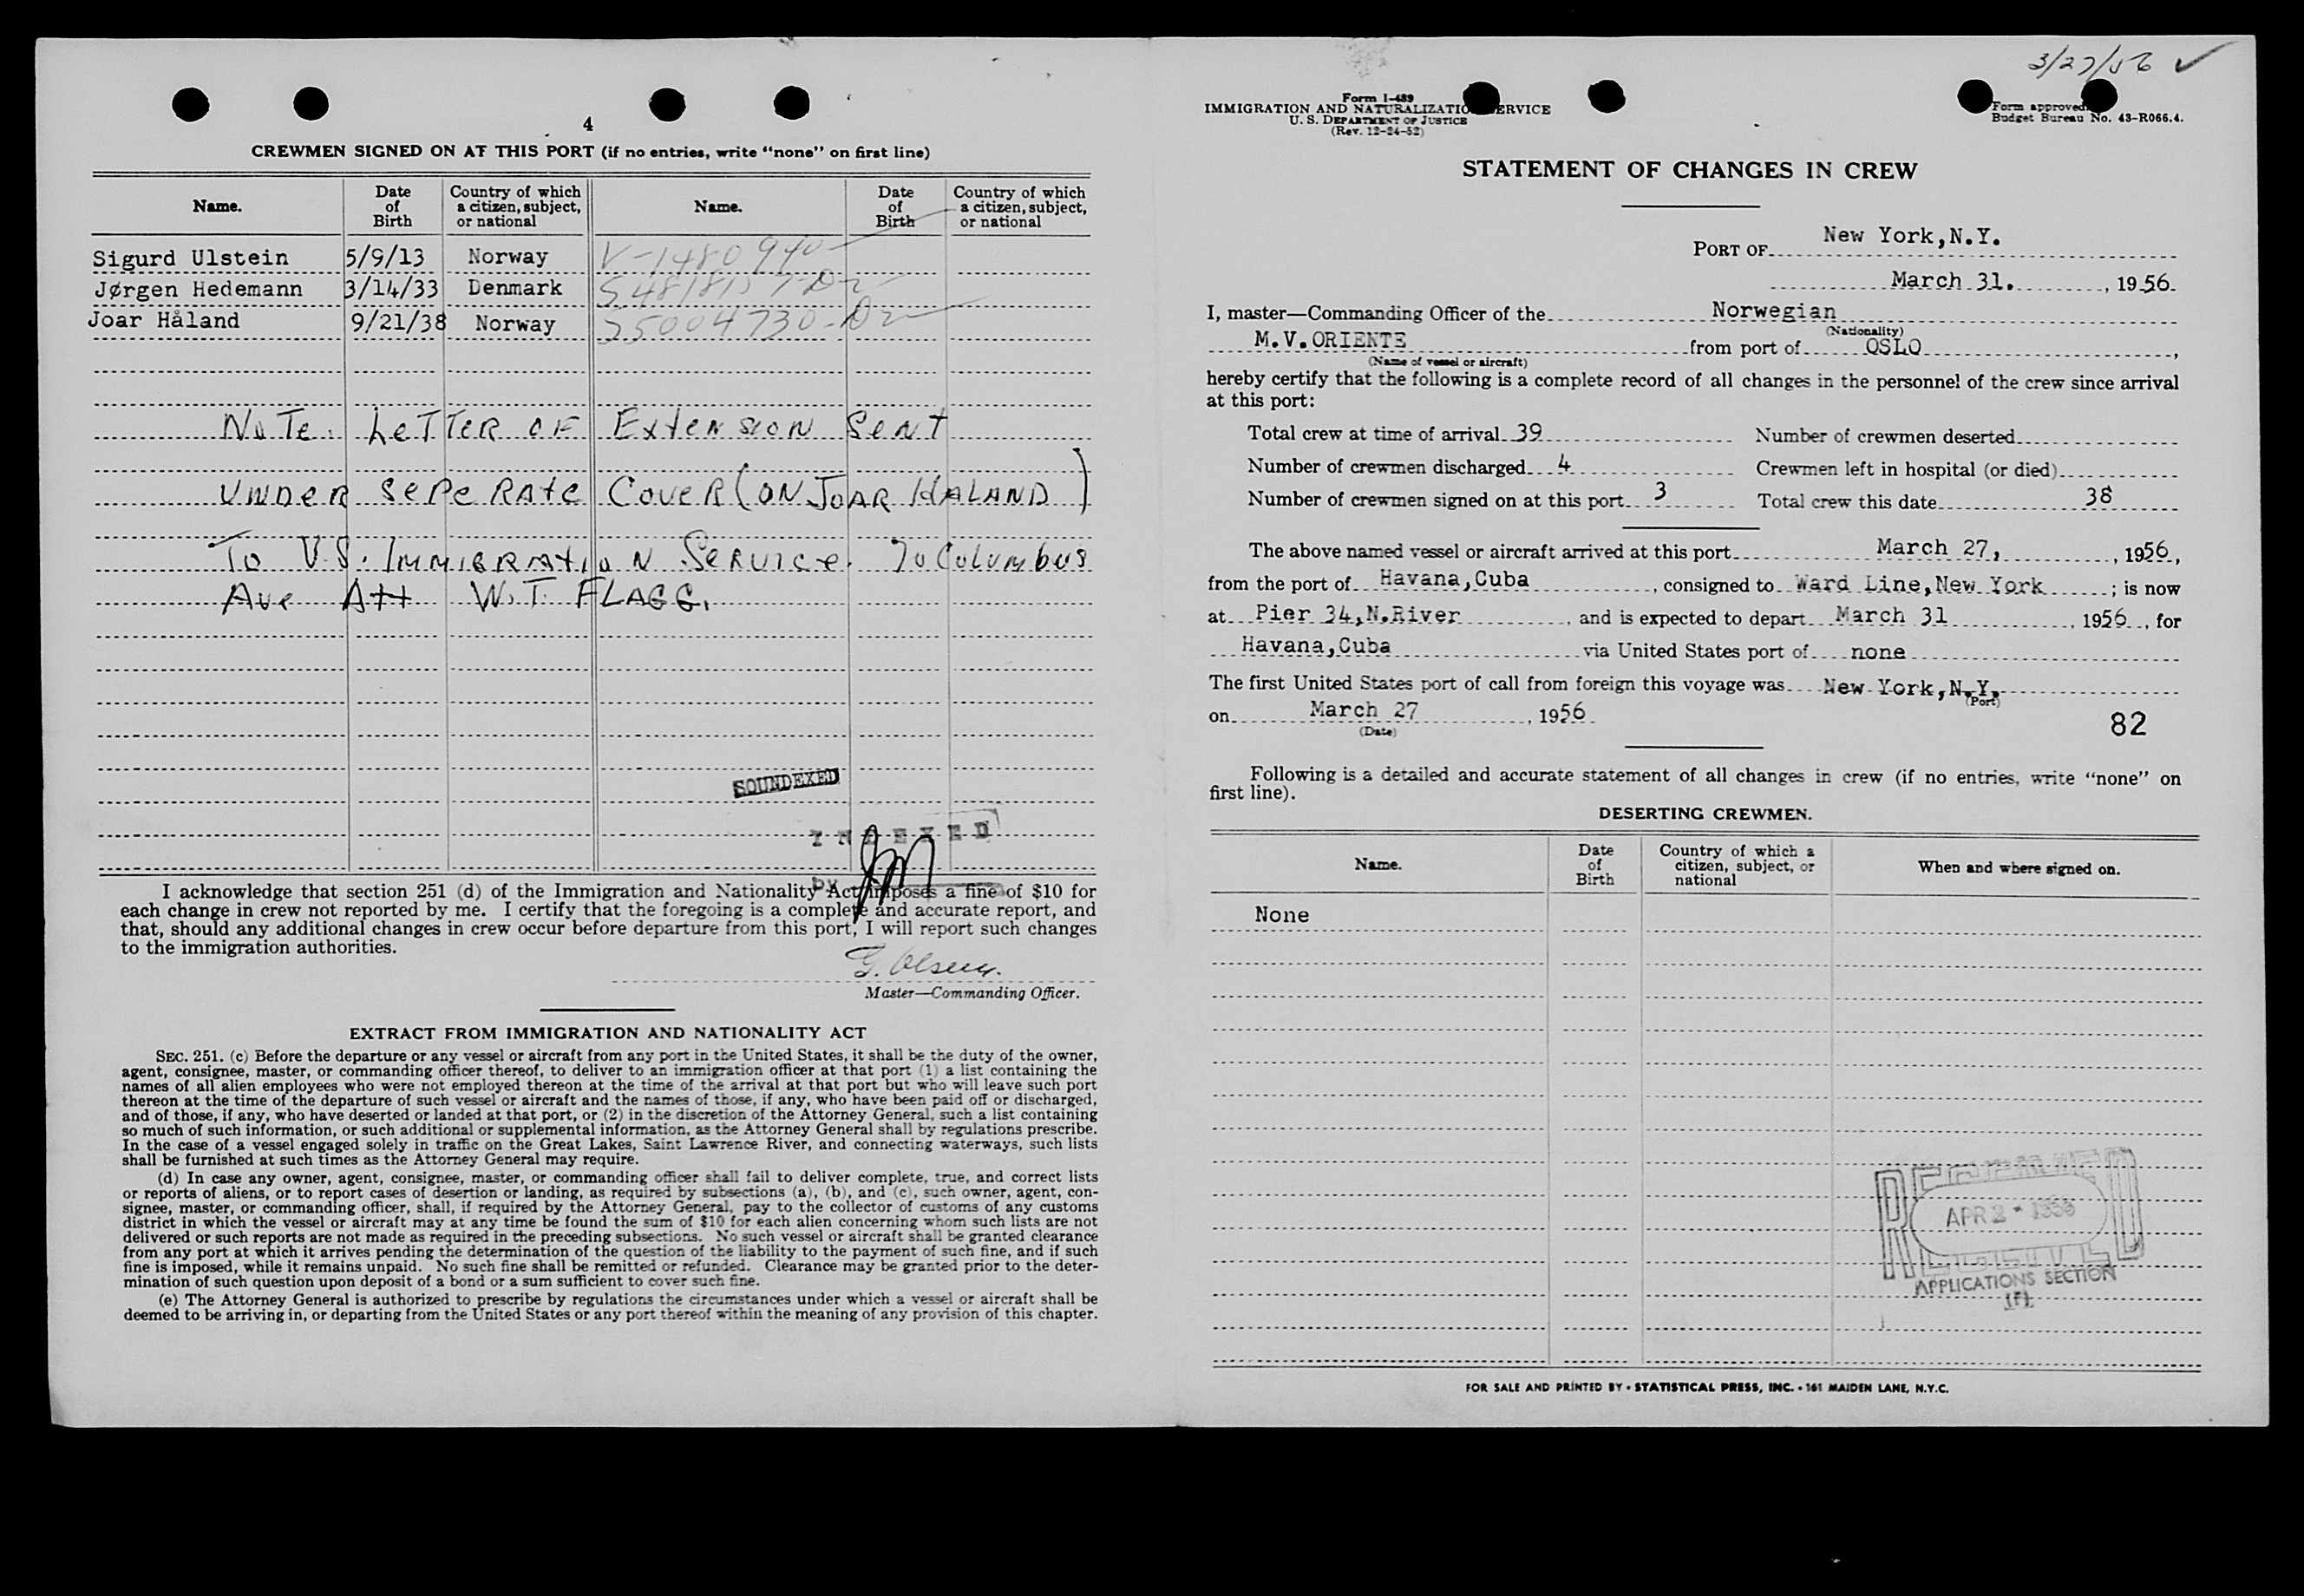 4
CREWMEN SIGNED ON AT THIS PORT (if no entries, write “none” on first line)
Name. Date of Birth Country of which a citizen, subject, or national Name. Date of Birth Country of which a citizen, subject, or national
Sigurd Ulstein 5/9/13 Norway V-1480940
Jørgen Hedemann 3/14/33 Denmark
Joar Håland 9/21/38 Norway
NoTe. LeTTeR OF Extension Sent
UNDER SePeRAte CoveR (ON JOAR HALAND)
To U.S. ImmigRation Service. 70 Columbus
Ave Att W.T. FLAGG.
SOUNDEXED
INDEXED
by JM
I acknowledge that section 251 (d) of the Immigration and Nationality Act imposes a fine of $10 for
each change in crew not reported by me. I certify that the foregoing is a complete and accurate report, and
that, should any additional changes in crew occur before departure from this port, I will report such changes
to the immigration authorities.
G. Olsen.
Master—Commanding Officer.
EXTRACT FROM IMMIGRATION AND NATIONALITY ACT
SEC. 251. (c) Before the departure or any vessel or aircraft from any port in the United States, it shall be the duty of the owner,
agent, consignee, master, or commanding officer thereof, to deliver to an immigration officer at that port (1) a list containing the
names of all alien employees who were not employed thereon at the time of the arrival at that port but who will leave such port
thereon at the time of the departure of such vessel or aircraft and the names of those, if any, who have been paid off or discharged,
and of those, if any, who have deserted or landed at that port, or (2) in the discretion of the Attorney General, such a list containing
so much of such information, or such additional or supplemental information, as the Attorney General shall by regulations prescribe.
In the case of a vessel engaged solely in traffic on the Great Lakes, Saint Lawrence River, and connecting waterways, such lists
shall be furnished at such times as the Attorney General may require.
(d) In case any owner, agent, consignee, master, or commanding officer shall fail to deliver complete, true, and correct lists
or reports of aliens, or to report cases of desertion or landing, as required by subsections (a), (b), and (c), such owner, agent, con-
signee, master, or commanding officer, shall, if required by the Attorney General, pay to the collector of customs of any customs
district in which the vessel or aircraft may at any time be found the sum of $10 for each alien concerning whom such lists are not
delivered or such reports are not made as required in the preceding subsections. No such vessel or aircraft shall be granted clearance
from any port at which it arrives pending the determination of the question of the liability to the payment of such fine, and if such
fine is imposed, while it remains unpaid. No such fine shall be remitted or refunded. Clearance may be granted prior to the deter-
mination of such question upon deposit of a bond or a sum sufficient to cover such fine.
(e) The Attorney General is authorized to prescribe by regulations the circumstances under which a vessel or aircraft shall be
deemed to be arriving in, or departing from the United States or any port thereof within the meaning of any provision of this chapter.
3/27/56 ✓
Form I-489
IMMIGRATION AND NATURALIZATION SERVICE
U. S. DEPARTMENT OF JUSTICE
(Rev. 12-24-52)
Form approved
Budget Bureau No. 43-R066.4.
STATEMENT OF CHANGES IN CREW
PORT OF New York,N.Y.
March 31. , 1956
I, master—Commanding Officer of the Norwegian
(Nationality)
M.V.ORIENTE from port of OSLO ,
(Name of vessel or aircraft)
hereby certify that the following is a complete record of all changes in the personnel of the crew since arrival
at this port:
Total crew at time of arrival 39 Number of crewmen deserted
Number of crewmen discharged 4 Crewmen left in hospital (or died)
Number of crewmen signed on at this port 3 Total crew this date 38
The above named vessel or aircraft arrived at this port March 27, , 1956,
from the port of Havana,Cuba , consigned to Ward Line,New York ; is now
at Pier 34,N.River , and is expected to depart March 31 , 1956 , for
Havana,Cuba via United States port of none
The first United States port of call from foreign this voyage was New York,N.Y.
(Port)
on March 27 , 1956
(Date)
82
Following is a detailed and accurate statement of all changes in crew (if no entries, write “none” on
first line).
DESERTING CREWMEN.
Name. Date of Birth Country of which a citizen, subject, or national When and where signed on.
None
RECEIVED
APR 2 - 1956
APPLICATIONS SECTION
FOR SALE AND PRINTED BY • STATISTICAL PRESS, INC. • 161 MAIDEN LANE, N.Y.C.